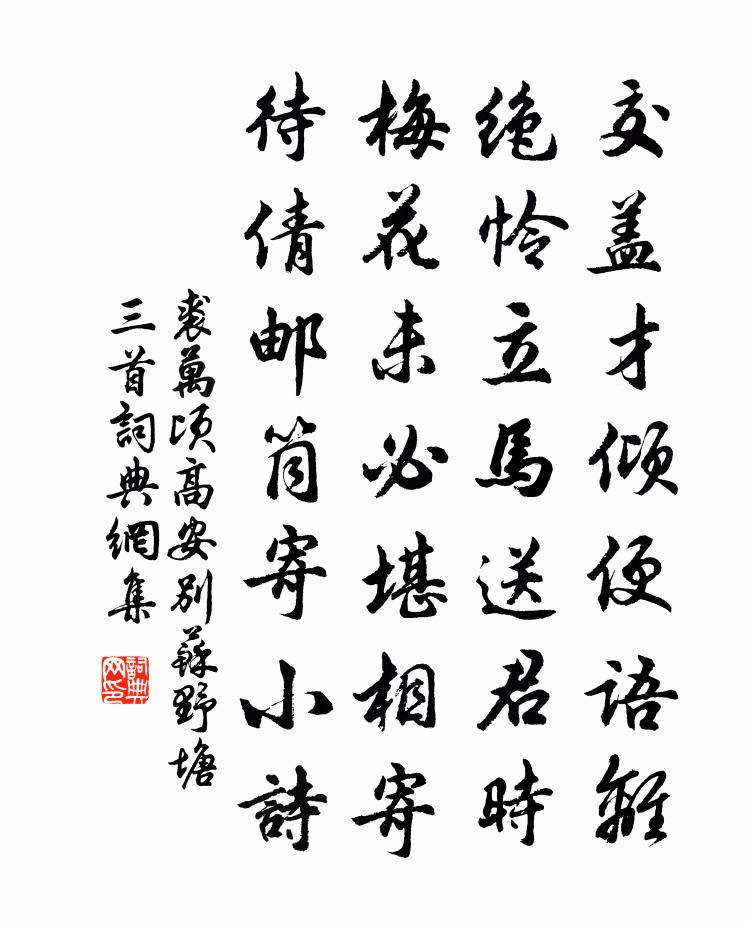 交盖才倾便语離
绝怜立馬送君時
梅花未必堪相寄
待倩邮筒寄小詩
裘萬頃高安别蘇野塘
三首詞典網集
詞典网印